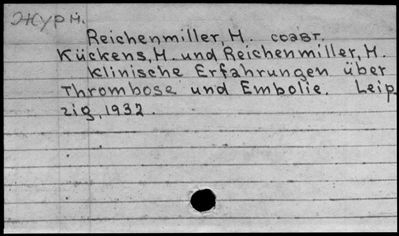 Журн.
Reichenmiller, H. соавт.
Kückens, H. und Reichenmiller, H.
Klinische Erfahrungen über
Thrombose und Embolie. Leip
zig, 1932.